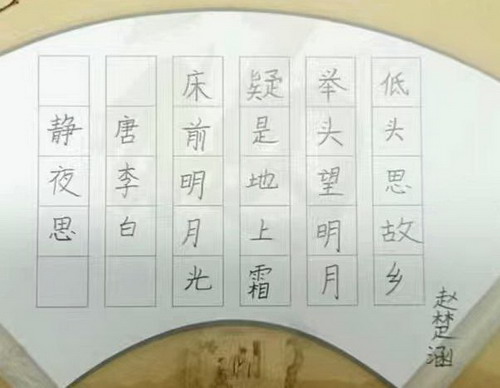 静夜思
唐李白
床前明月光
疑是地上霜
举头望明月
低头思故乡
赵楚涵